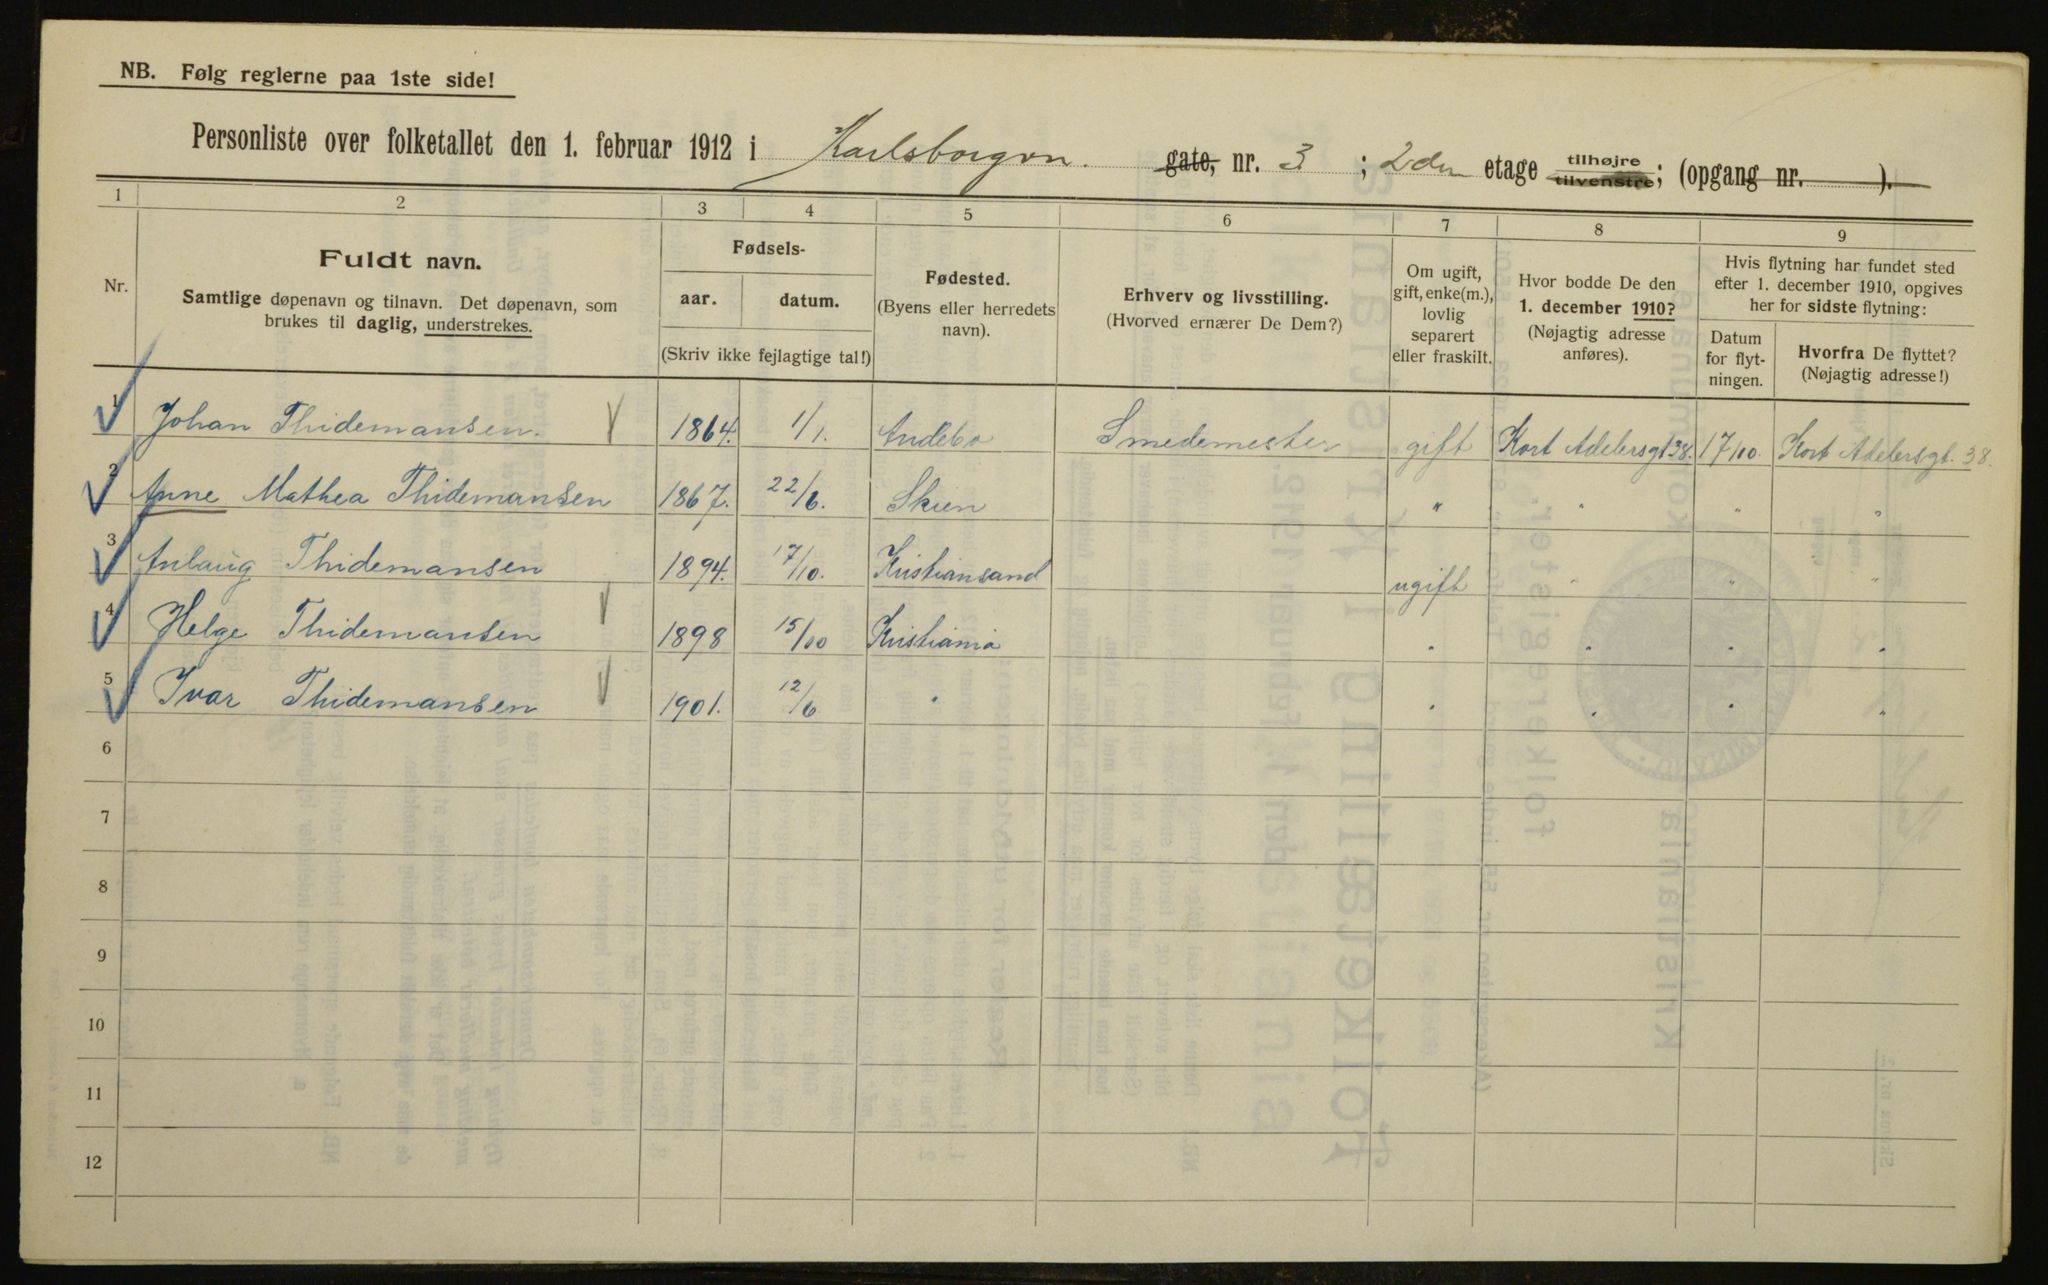 NB. Følg reglerne paa 1ste side!
Personliste over folketallet den 1. februar 1912 i Karlsborgvn. gate, nr. 3 ; 2den etage tilhøjre tilvenstre; (opgang nr. ).
1 2 3 4 5 6 7 8 9
Nr.
Fuldt navn.
Samtlige døpenavn og tilnavn. Det døpenavn, som
brukes til daglig, understrekes.
Fødsels-
aar. datum.
(Skriv ikke fejlagtige tal!)
Fødested.
(Byens eller herredets
navn).
Erhverv og livsstilling.
(Hvorved ernærer De Dem?)
Om ugift,
gift, enke(m.),
lovlig
separert
eller fraskilt.
Hvor bodde De den
1. december 1910?
(Nøjagtig adresse
anføres).
Hvis flytning har fundet sted
efter 1. december 1910, opgives
her for sidste flytning:
Datum
for flyt-
ningen.
Hvorfra De flyttet?
(Nøjagtig adresse!)
1 Johan Thidemansen. 1864. 1/1. Andebo Smedemester gift Kort Adelersgt 38. 17/10. Kort Adelersgt. 38.
2 Anne Mathea Thidemansen 1867. 22/6. Skien " " " "
3 Anlaug Thidemansen 1894. 17/10. Kristiansand ugift " " "
4 Helge Thidemansen 1898 15/10 Kristiania " " " "
5 Ivar Thidemansen 1901. 12/6 " " " " "
6
7
8
9
10
11
12